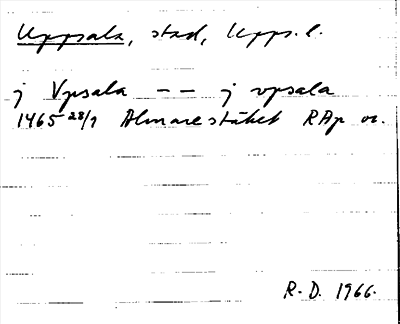 Uppsala, stad, Upps. l.
j Vpsala -- j vpsala
1465 28/1 Almarestäket RAp or.
R. D. 1966.